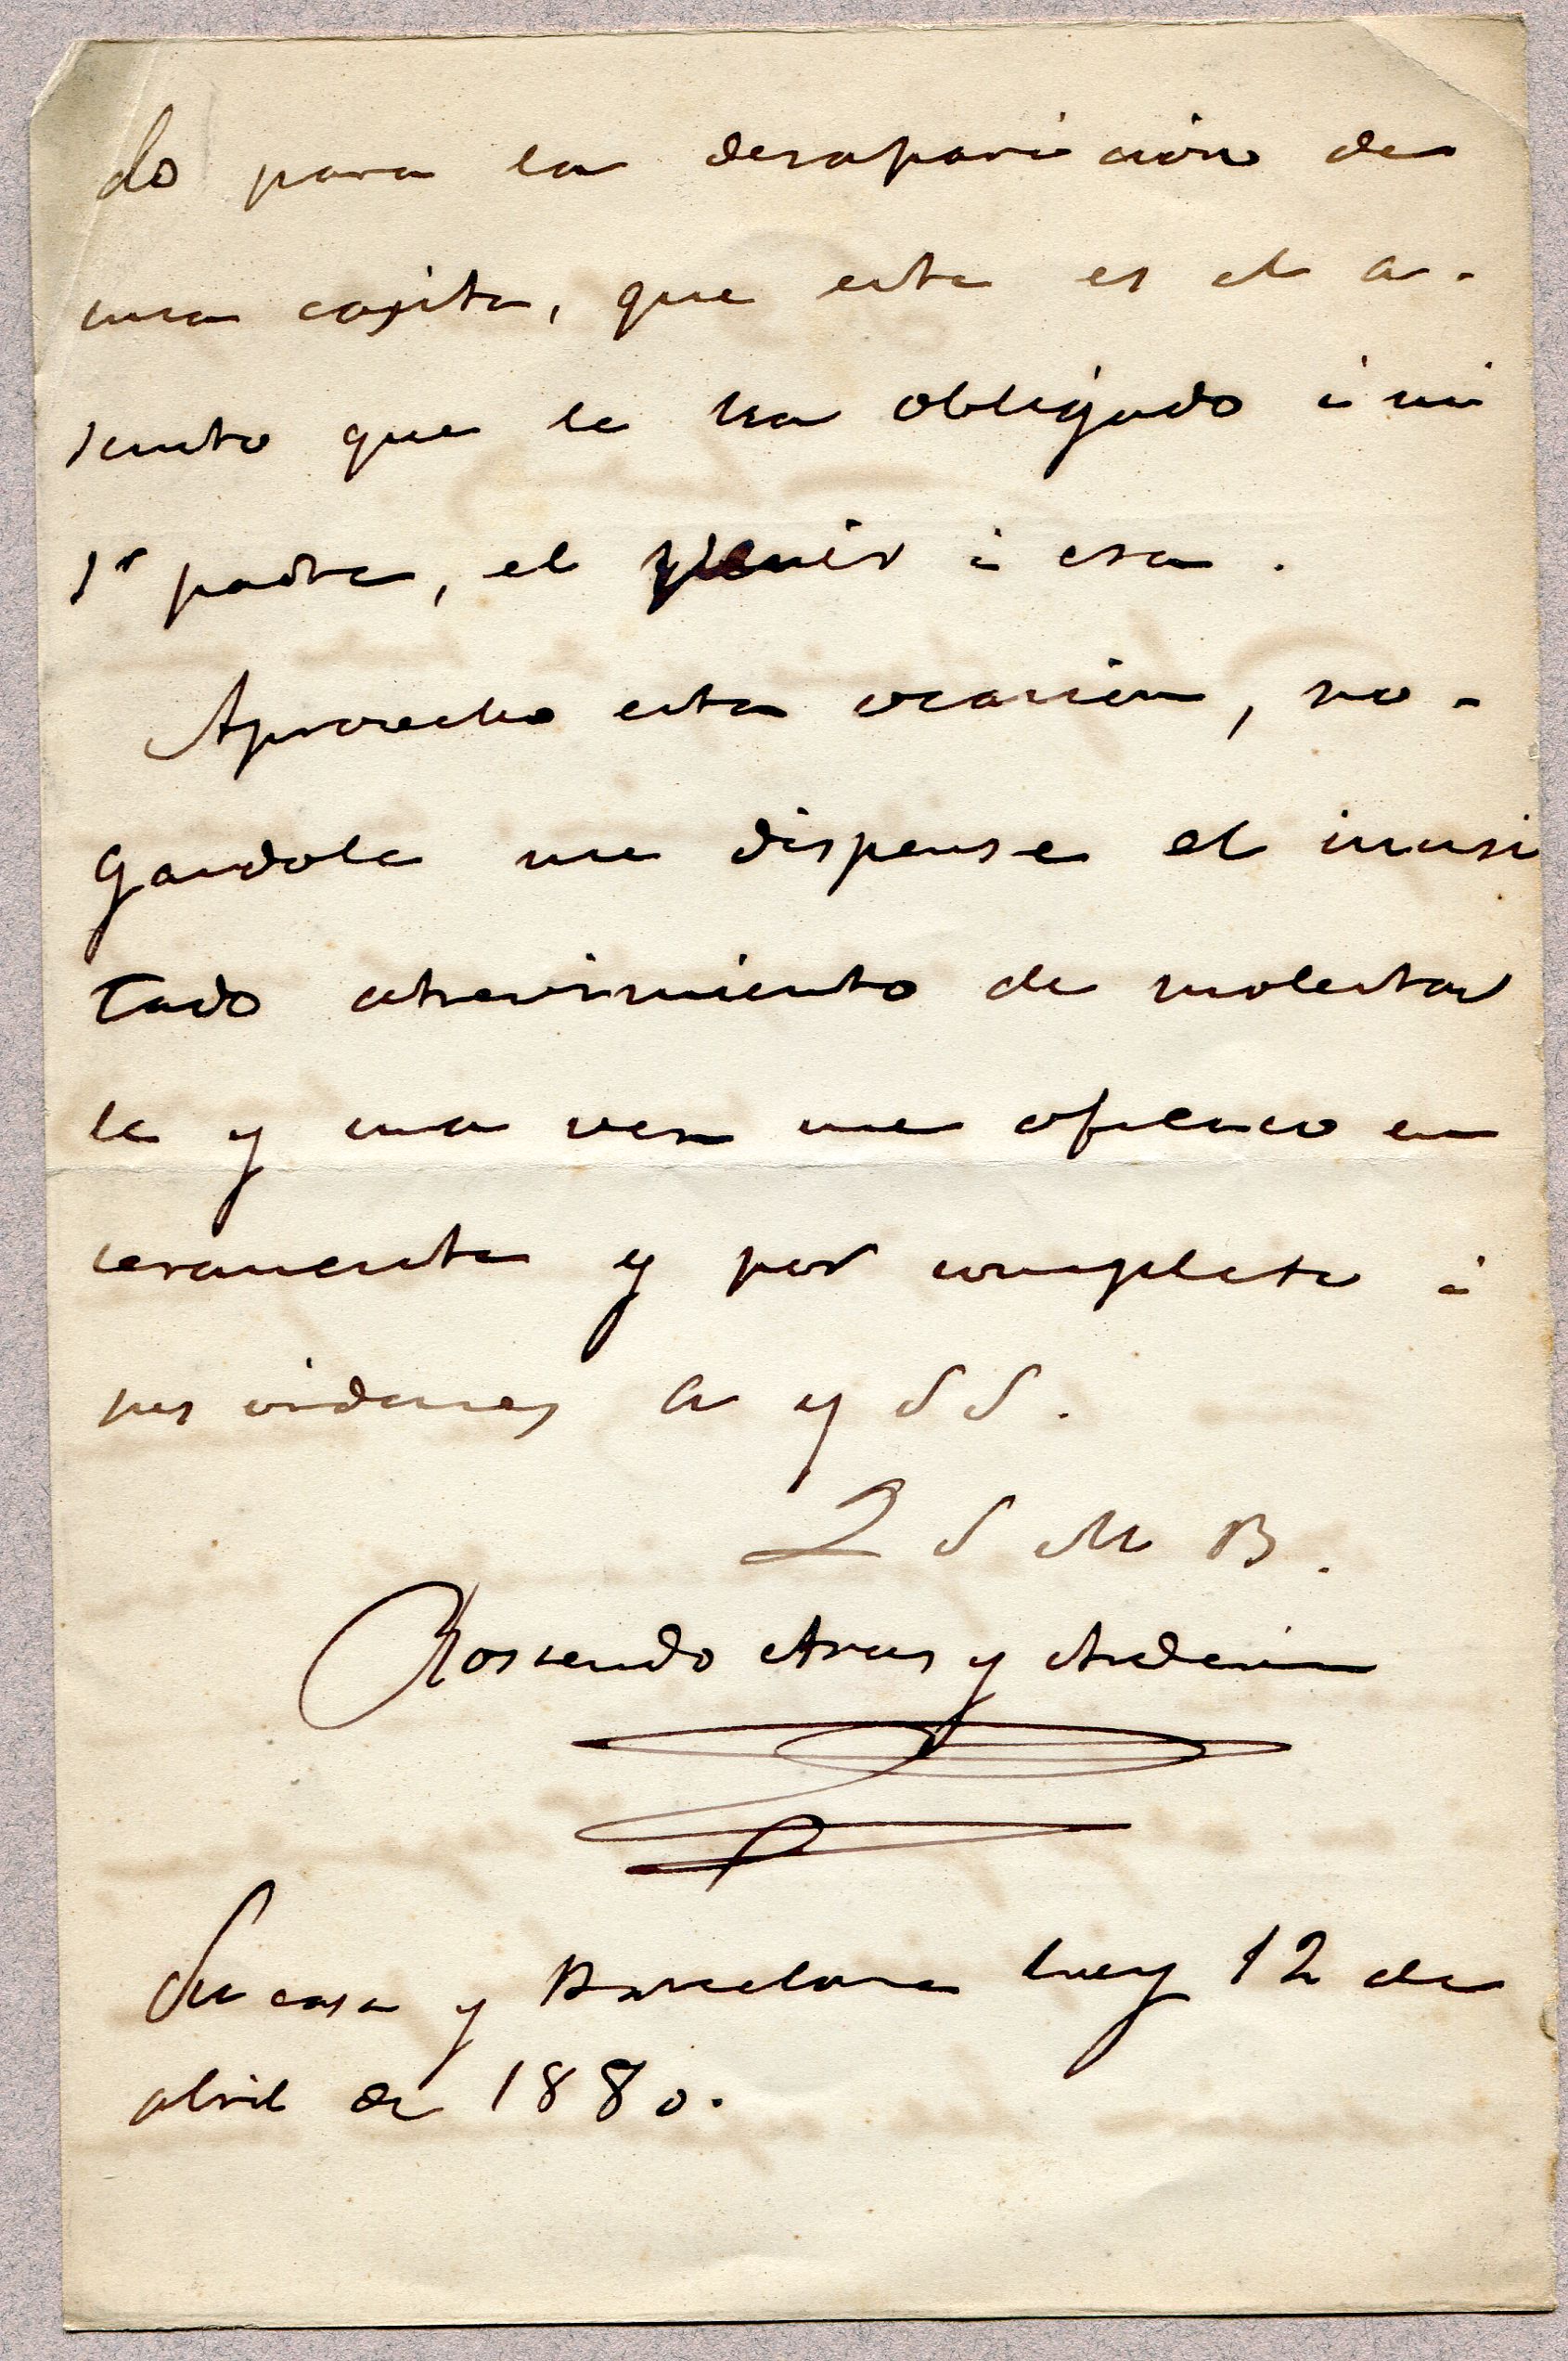 do para la desaparicion de
una cajita, que este es el a-
sunto que le ha obligado á mi
Sr padre, el venir á esa.
Aprovecho esta ocasion, ro-
gandole me dispense el inusi
tado atrevimiento de molestar
le y una vez me ofresco en
teramente y por completo á
sus ordenes A y S S.
Q S M B.
Rossendo Arus y Arderiu
Su casa y Barcelona hoy 12 de
abril de 1880.